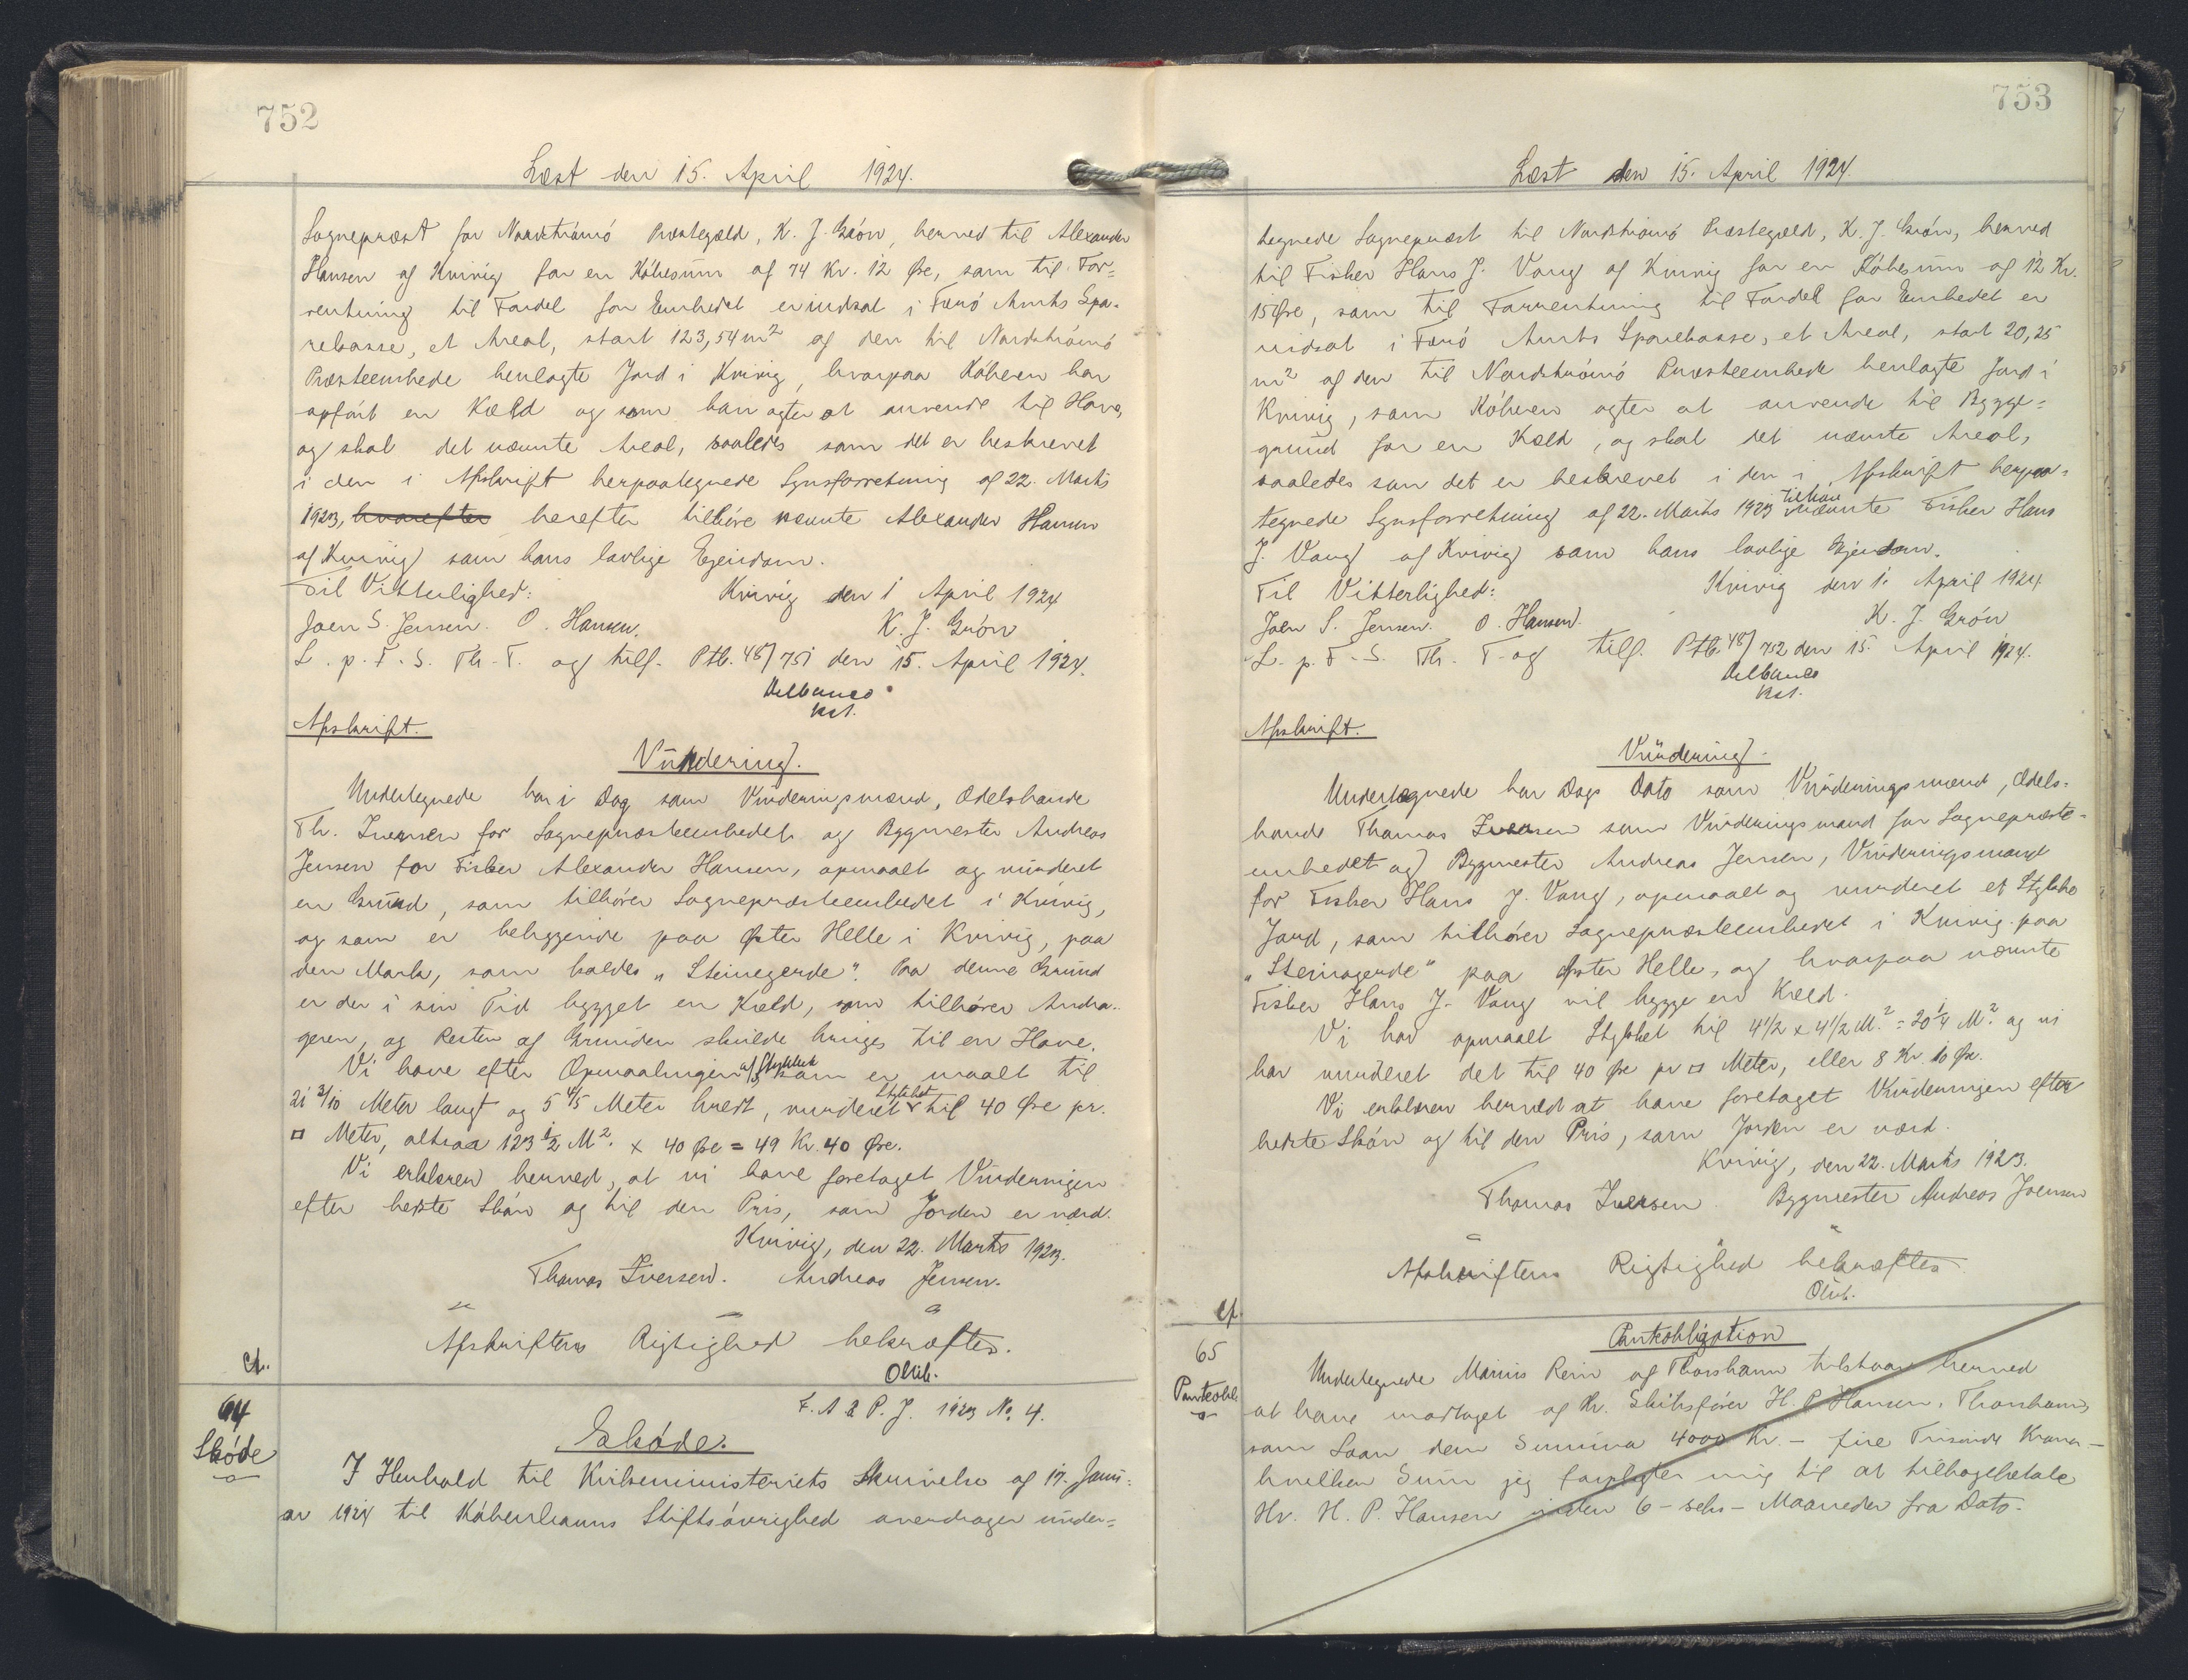 752
Læst den 15. April 1924.
Sognepræst for Nordströmö Præstegæld, K. J. Grön, herved til Alexander
Hansen af Kvivig for en Köbesum af 74 Kr. 12 Øre, som til For=
rentning til Fordel for Embedet er indsat i Færö Amts Spa-
rekasse, et Areal, stort 123,54 m² af den til Nordströmö
Præsteembede henlagte Jord i Kvivig, hvorpaa Köberen har
opfört en Kæld og som han agter at anvende til Have,
og skal det nævnte Areal, saaledes som det er beskrevet
i den i Afskrift herpaategnede Synsforretning af 22. Marts
1923, hvorefter herefter tilhöre nævnte Alexander Hansen
af Kvivig som hans lovlige Ejendom.
Til Vitterlighed: Kvivig den 1 April 1924
Joen S. Jensen. O. Hansen. K. J. Grön
L. p. F. S. Th. T. og tilf. Ptb. 48/751 den 15. April 1924.
Delbanco
kst.
Afskrift.
Vurdering.
Undertegnede har i Dag som Vurderingsmænd, Odelsbonde
Th. Iversen for Sognepræsteembedet og Bygmester Andreas
Jensen for Fisker Alexander Hansen, opmaalt og vurderet
en Grund, som tilhører Sognepræsteembedet i Kvivig,
og som er beliggende paa Øster Helle i Kvivig, paa
den Mark, som kaldes "Steinegerde". Paa denne Grund
er der i sin Tid bygget en Kæld, som tilhører Andra-
geren, og Resten af Grunden skulde bruges til en Have.
Vi have efter Opmaalingen af Stykket som er maalt til
21 3/10 Meter langt og 5 4/5 Meter bredt, vurderet Stykket til 40 Øre pr.
□ Meter, altsaa 123 1/2 M². x 40 Øre = 49 Kr. 40 Øre.
Vi erklærer herved, at vi have foretaget Vurderingen
efter bedste Skön og til den Pris, som Jorden er værd.
Kvivig, den 22. Marts 1923.
Thomas Iversen. Andreas Jensen.
Afskriftens Rigtighed bekræftes.
cf.
64
Sköde
F. A & P. J. 1923 No. 4.
Sköde.
I Henhold til Kirkeministeriets Skrivelse af 17. Janu=
ar 1924 til Köbenhavns Stiftsövrighed overdrager under=
753
Læst den 15. April 1924.
tegnede Sognepræst til Nordströmö Præstegæld, K. J. Grön, herved
til Fisker Hans J. Vang af Kvivig for en Köbesum af 12 Kr.
15 Øre, som til Forrentning til Fordel for Embedet er
indsat i Færö Amts Sparekasse, et Areal, stort 20,25
m² af den til Nordströmö Præsteembede henlagte Jord i
Kvivig, som Köberen agter at anvende til Bygge=
grund for en Kæld, og skal det nævnte Areal,
saaledes som det er beskrevet i den i Afskrift herpaa=
tegnede Synsforretning af 22. Marts 1923 tilhöre nævnte Fisker Hans
J. Vang af Kvivig som hans lovlige Ejendom.
Til Vitterlighed: Kvivig den 1. April 1924
Joen S. Jensen. O. Hansen. K. J. Grön
L. p. F. S. Th. T. og tilf. Ptb. 48/752 den 15. April 1924.
Delbanco
kst.
Afskrift.
Vurdering.
Undertegnede har Dags Dato som Vurderingsmænd, Odels-
bonde Thomas Iversen som Vurderingsmand for Sognepræste-
embedet og Bygmester Andreas Jensen, Vurderingsmand
for Fisker Hans J. Vang, opmaalt og vurderet et Stykke
Jord, som tilhører Sognepræsteembedet i Kvivig paa
"Steinagerde" paa Øster Helle, og hvorpaa nævnte
Fisker Hans J. Vang vil bygge en Kæld.
Vi har opmaalt Stykket til 4 1/2 x 4 1/2 M.² = 20 1/4 M². og vi
har vurderet det til 40 Øre pr □ Meter, eller 8 Kr 10 Øre.
Vi erklærer herved at have foretaget Vurderingen efter
bedste Skön og til den Pris, som Jorden er værd.
Kvivig, den 22. Marts 1923.
Thomas Iversen Bygmester Andreas Joensen
Afskriftens Rigtighed bekræftes
cf.
65
Pantobl
Pantobligation
Undertegnede Marius Rein af Thorshavn tilstaar herved
at have modtaget af Hr. Skibsfører H. P. Hansen, Thorshavn,
som Laan den Summa 4000 Kr. - fire Tusinde Kroner -
hvilken Sum jeg forpligter mig til at tilbagebetale
Hr. H. P. Hansen inden 6 - seks - Maaneder fra Dato.